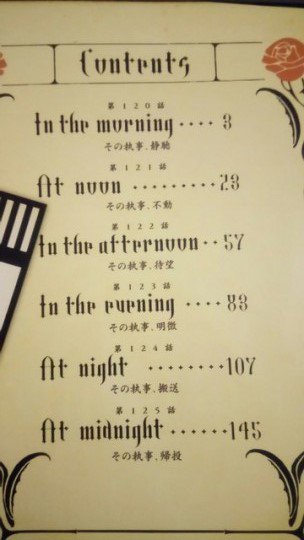 Contents
第120話
In the morning ···· 3
その執事、静聴
第121話
At noon ········· 23
その執事、不動
第122話
In the afternoon ·· 57
その執事、待望
第123話
In the evening ···· 83
その執事、明徴
第124話
At night ········ 107
その執事、搬送
第125話
At midnight ······ 145
その執事、帰投